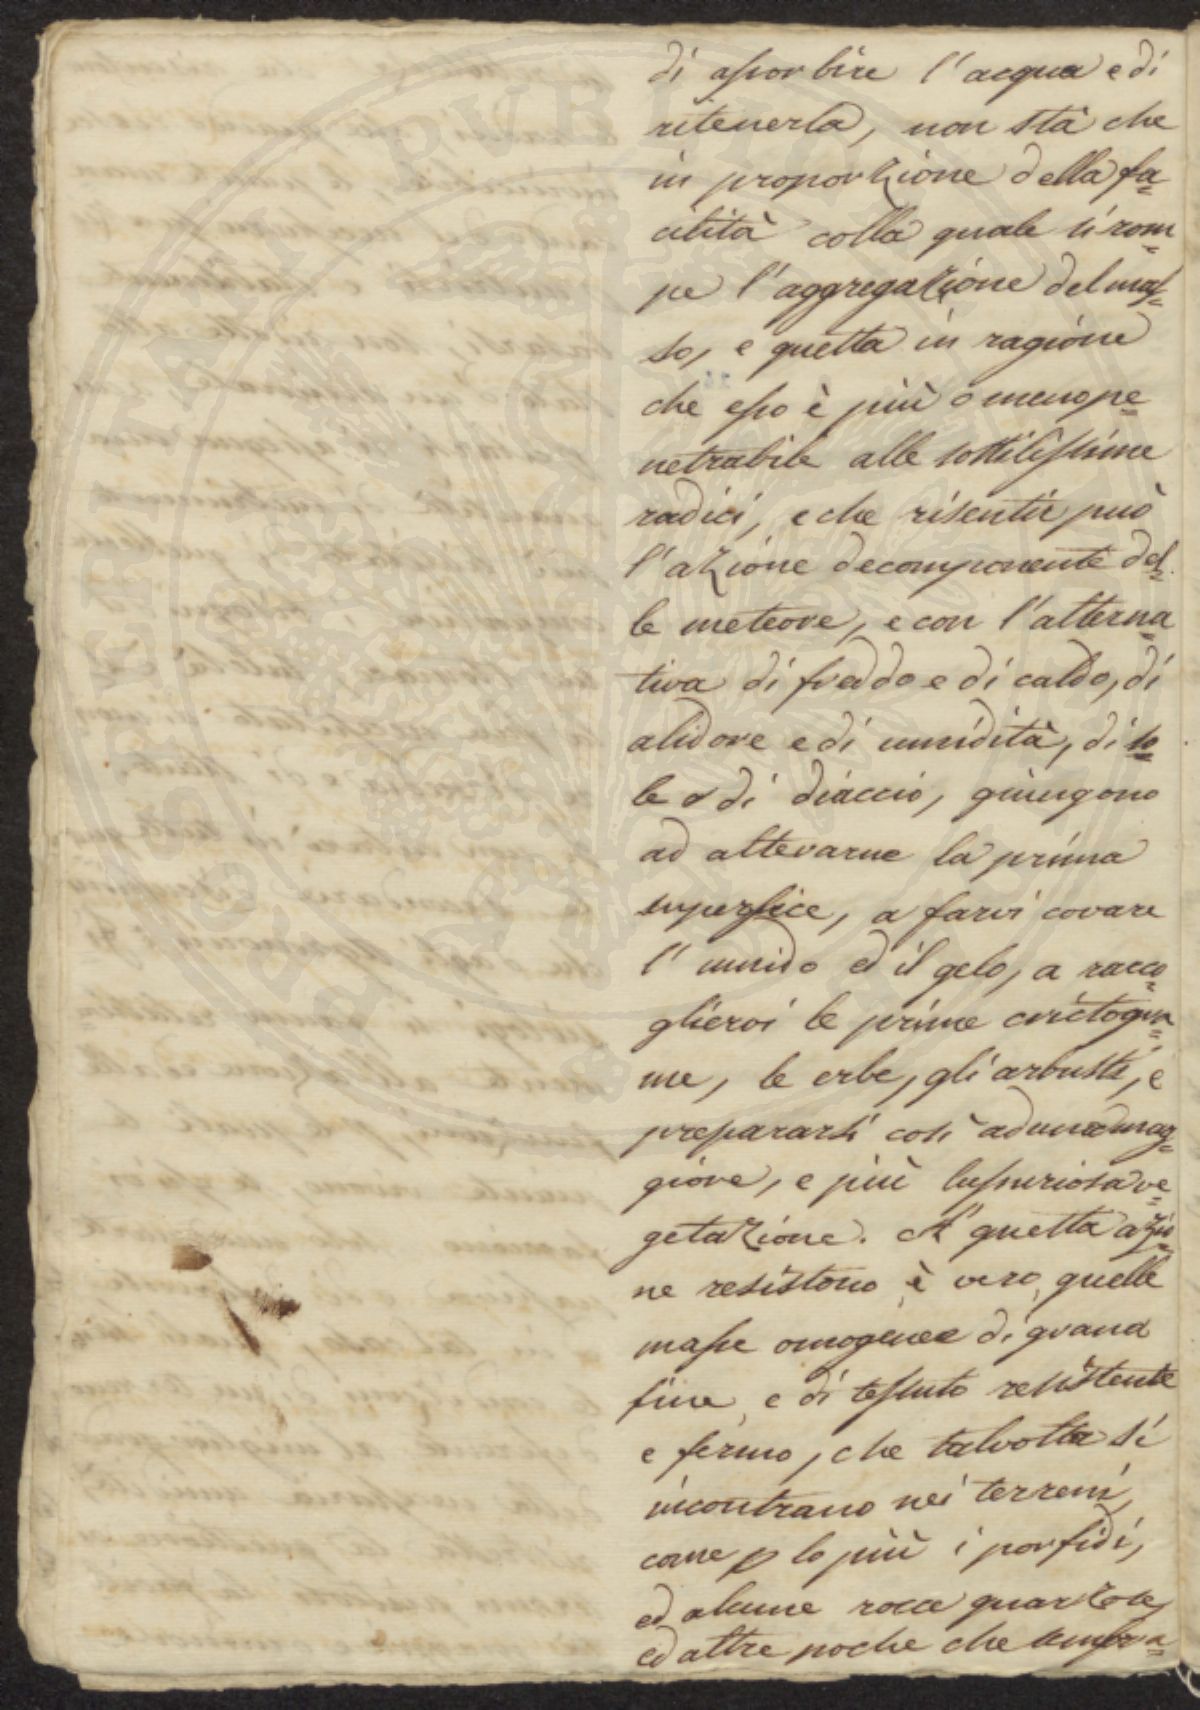 di assorbire l'acqua e di
ritenerla, non stà che
in proporzione della fa=
cilità colla quale si rom=
pe l'aggregazione del mas=
so, e questa in ragione
che esso è più o meno pe=
netrabile alle sottilissime
radici, e che risentir può
l'azione decomponente del=
le meteore, e con l'alterna=
tiva di freddo e di caldo, di
alidore e di umidità, di so=
le o di diaccio, giungono
ad alterarne la prima
superfice, a farvi covare
l'umido ed il gelo, a racco=
gliervi le prime crictogam=
me, le erbe, gli arbusti, e
prepararsi così ad una mag=
giore, e più lussuriosa ve=
getazione. A questa azio=
ne resistono è vero, quelle
masse omogenee di grana
fine, e di tessuto resistente
e fermo, che talvolta si
incontrano nei terreni,
come p lo più i porfidi,
ed alcune rocce quarzose,
ed altre poche che